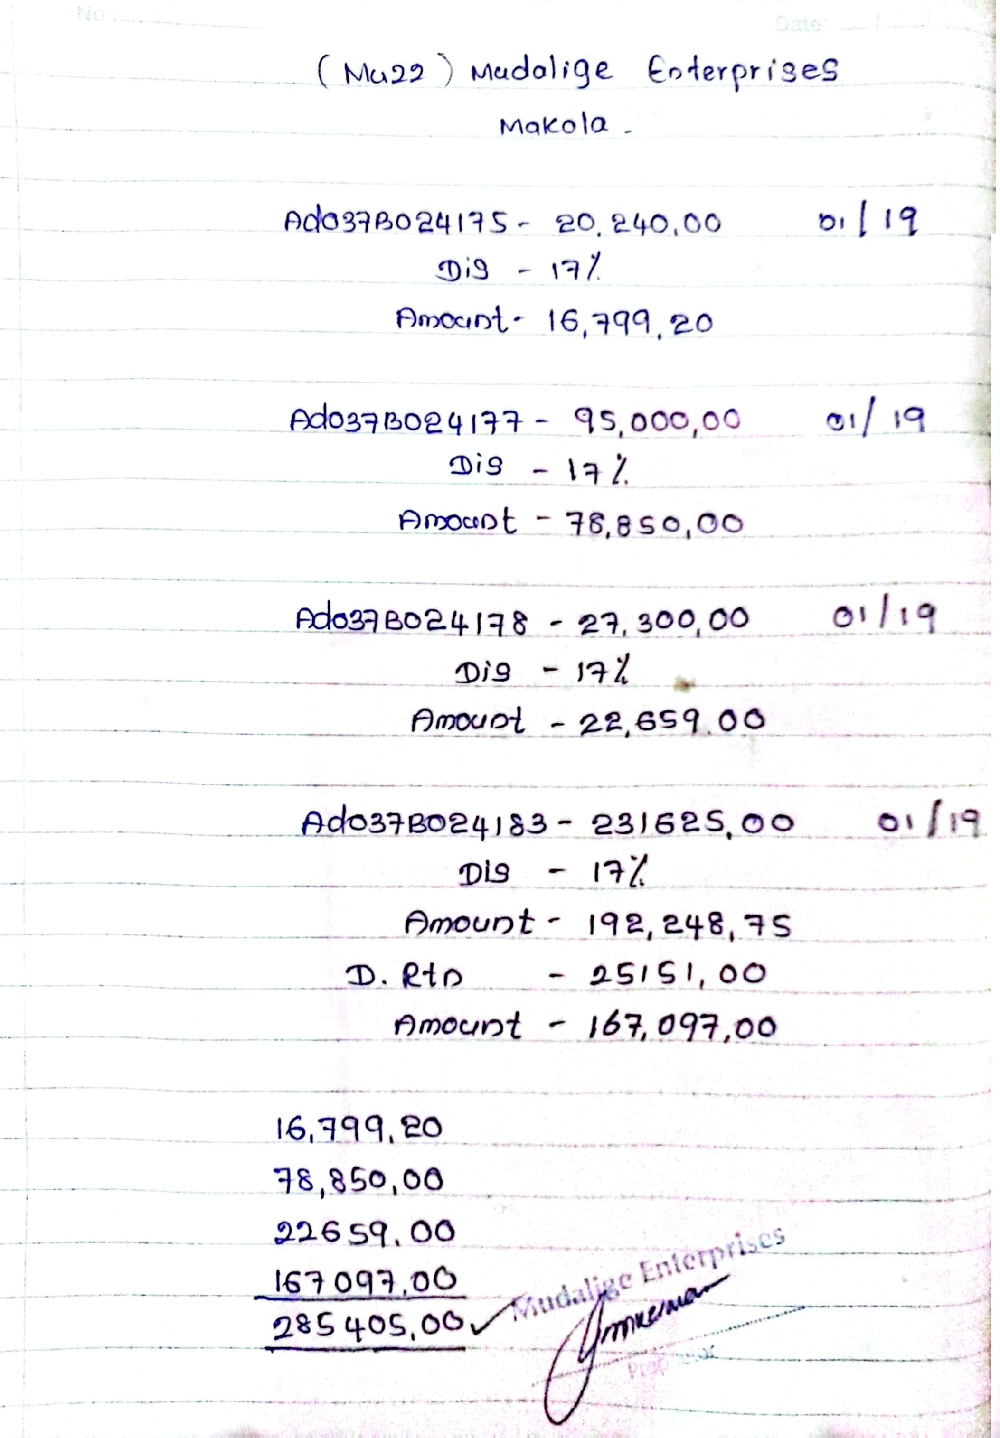 No:
Date: / /
(Mu22) Mudalige Enterprises
Makola -
Ado37B024175 - 20,240,00 01/19
Dis - 17%
Amount - 16,799,20
Ado37B024177 - 95,000,00 01/19
Dis - 17%
Amount - 78,850,00
Ado37B024178 - 27,300,00 01/19
Dis - 17%
Amount - 22,659.00
Ado37B024183 - 231625,00 01/19
Dis - 17%
Amount - 192,248,75
D. Rtn - 25151,00
Amount - 167,097,00
16,799,20
78,850,00
22659,00
167097,00
285405,00 ✓
Mudalige Enterprises
Proprietor